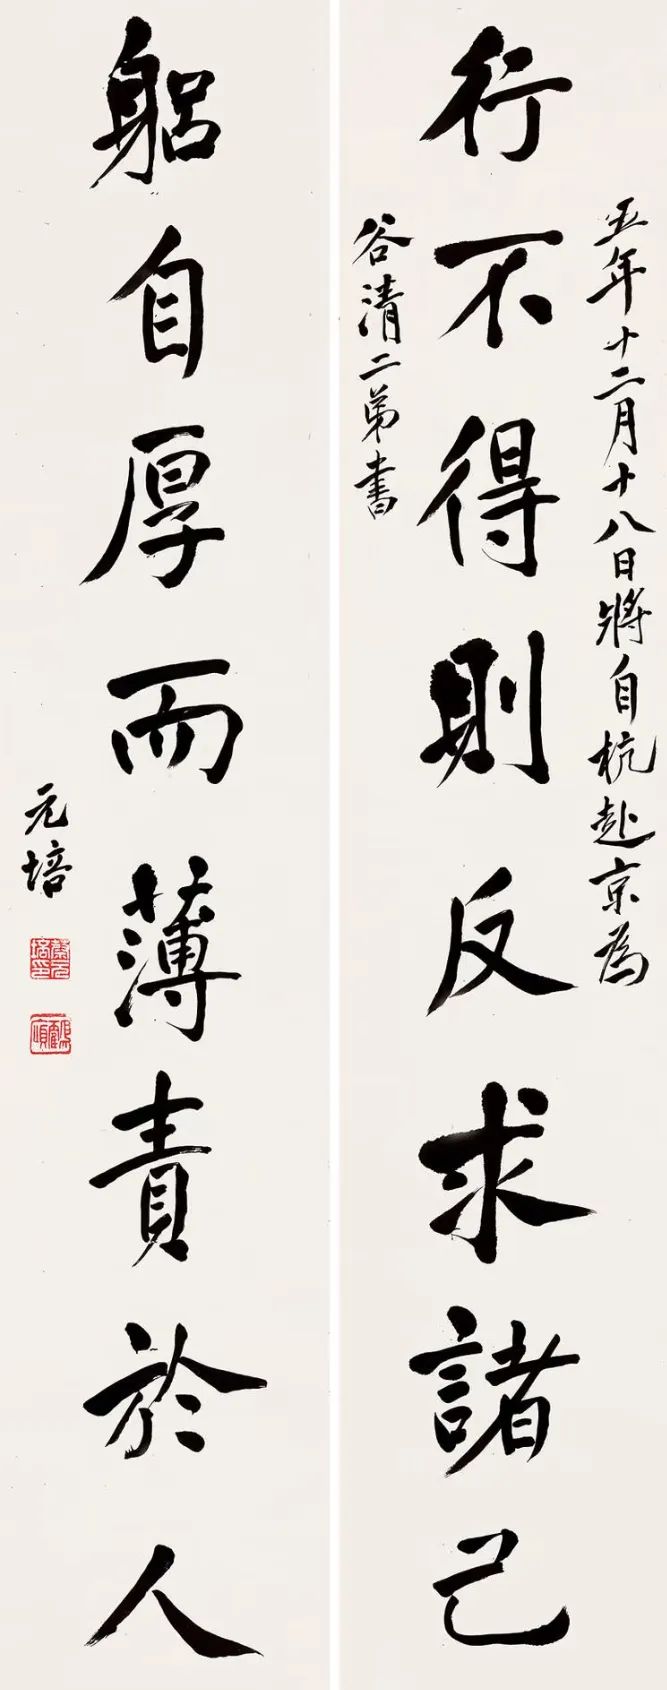 行不得則反求諸己
五年十二月十八日將自杭赴京為
谷清二弟書
躳自厚而薄責於人
元培
蔡元培印